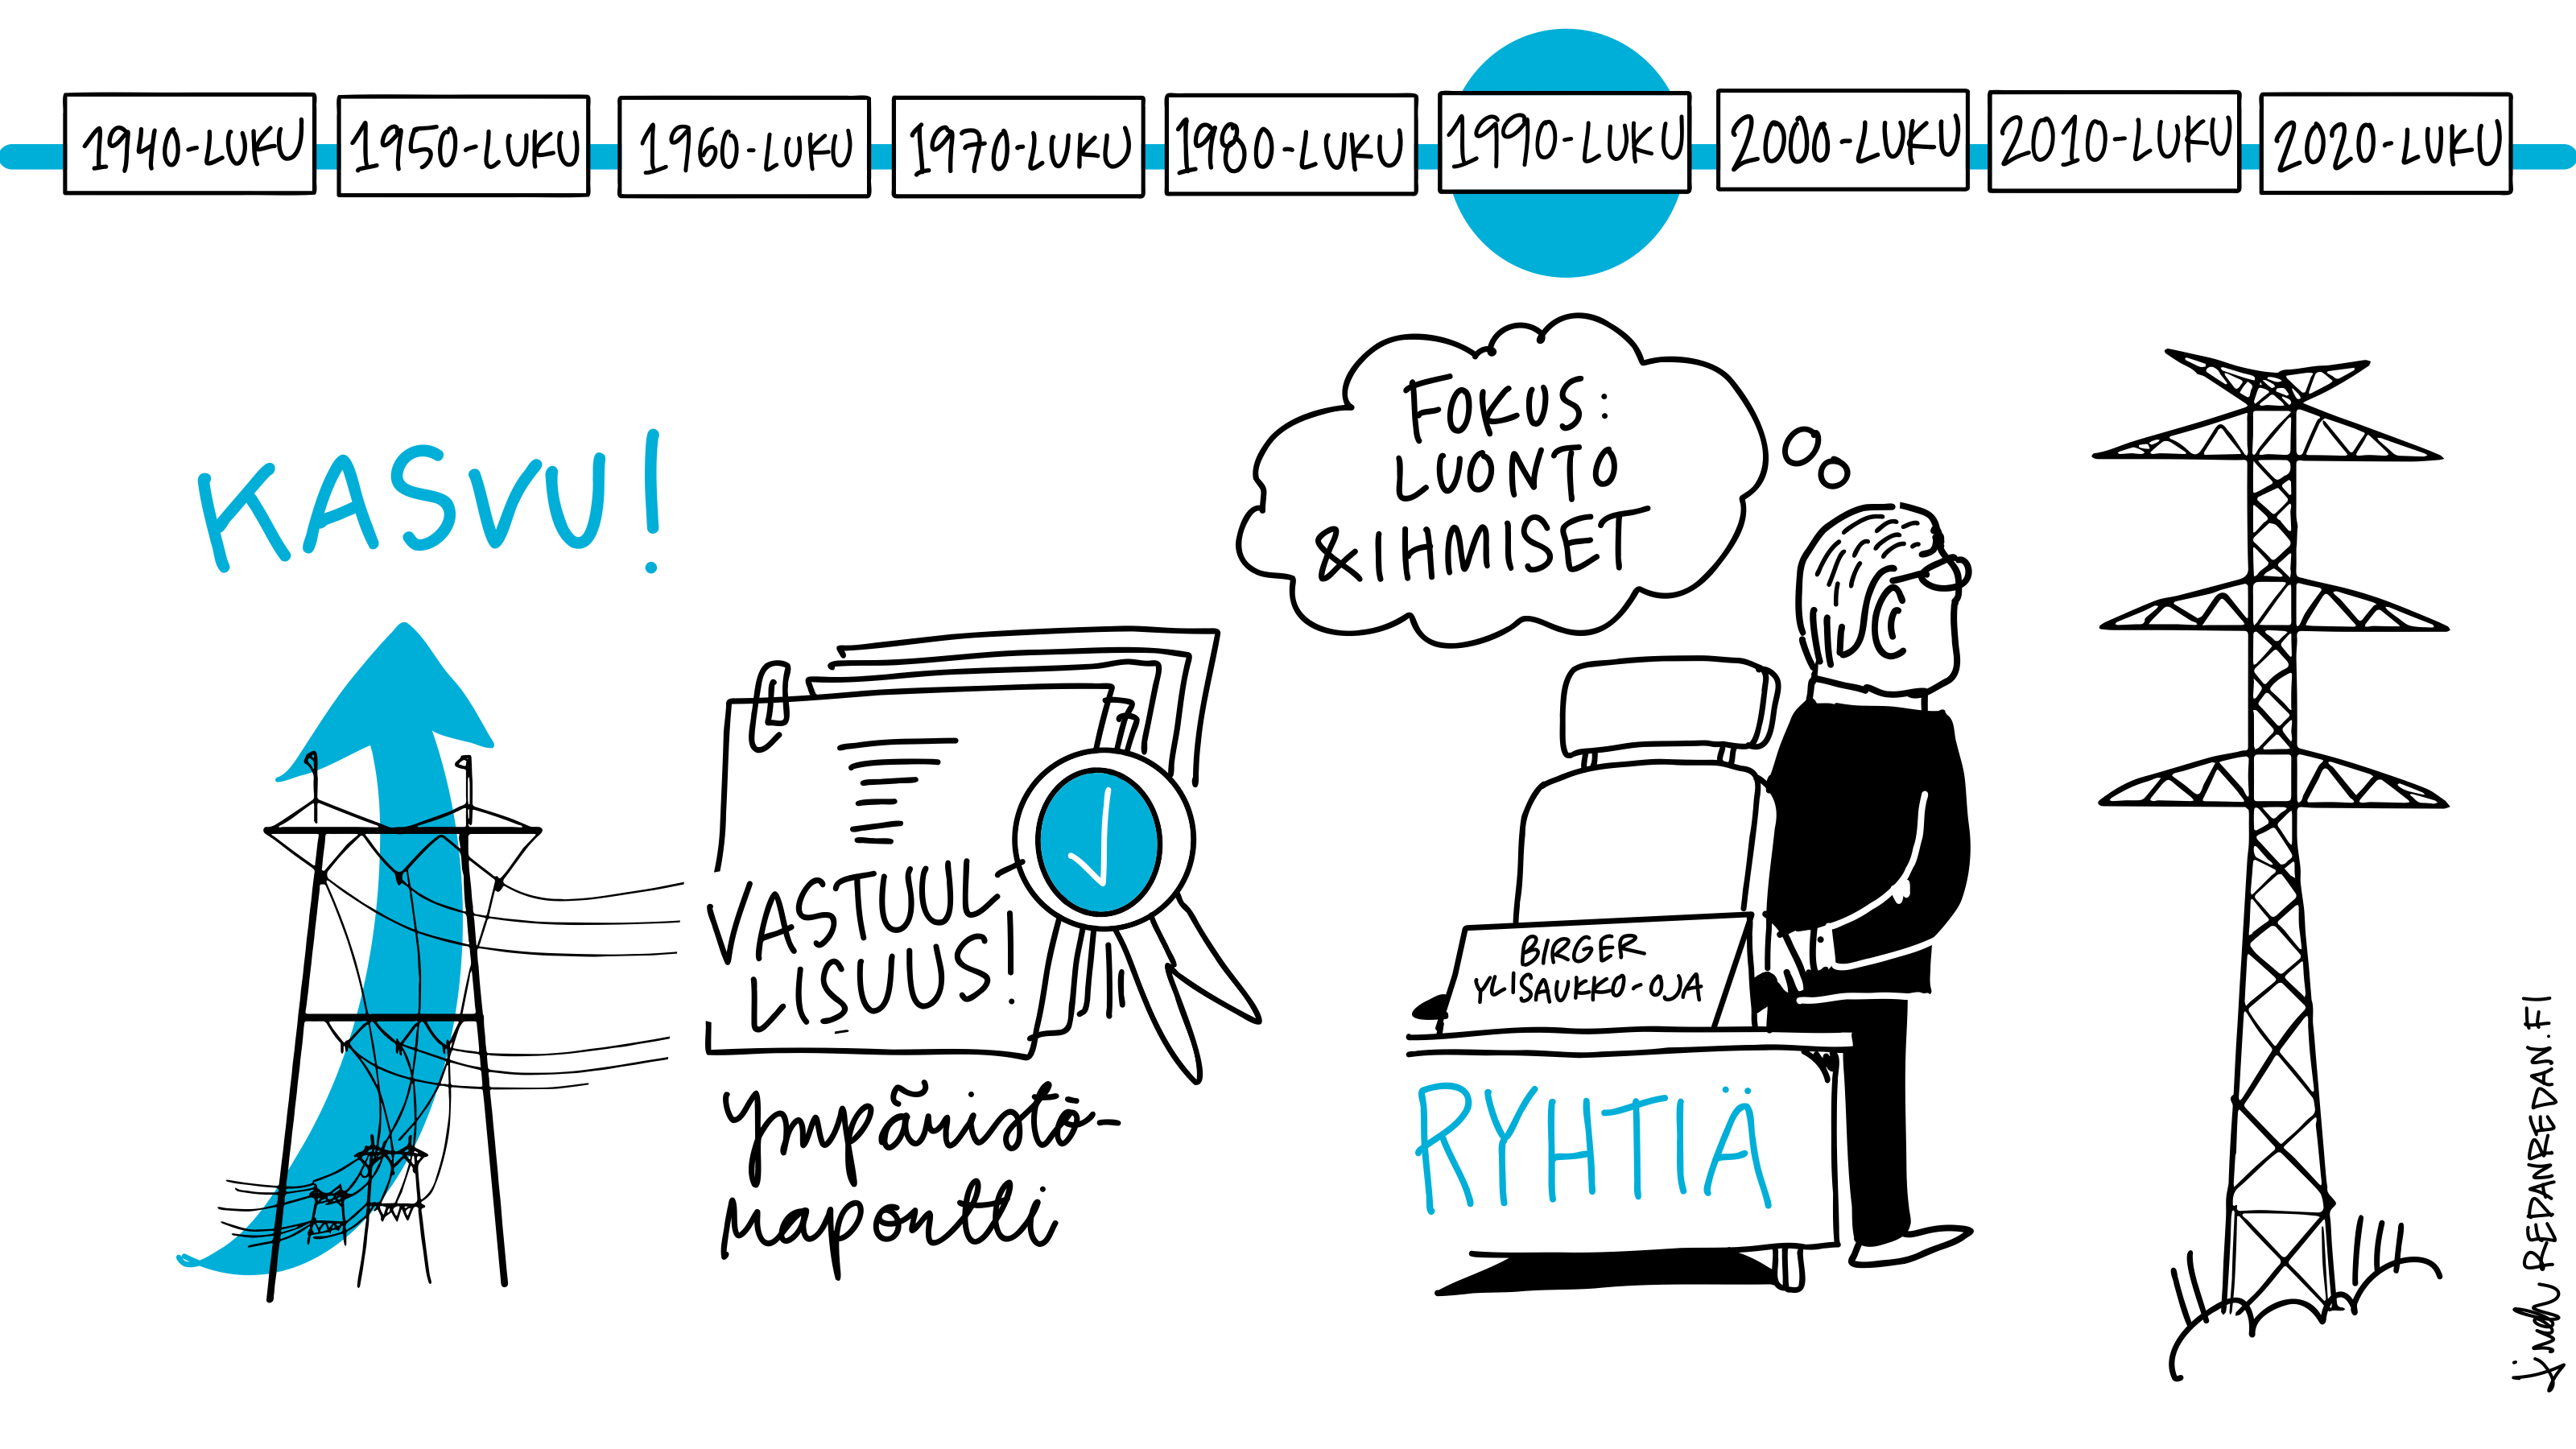 1940-LUKU
1950-LUKU
1960-LUKU
1970-LUKU
1980-LUKU
1990-LUKU
2000-LUKU
2010-LUKU
2020-LUKU
KASVU!
VASTUUL-
LISUUS!
Ympäristö-
raportti
FOKUS:
LUONTO
& IHMISET
BIRGER
YLISAUKKO-OJA
RYHTIÄ
REDANREDAN.FI